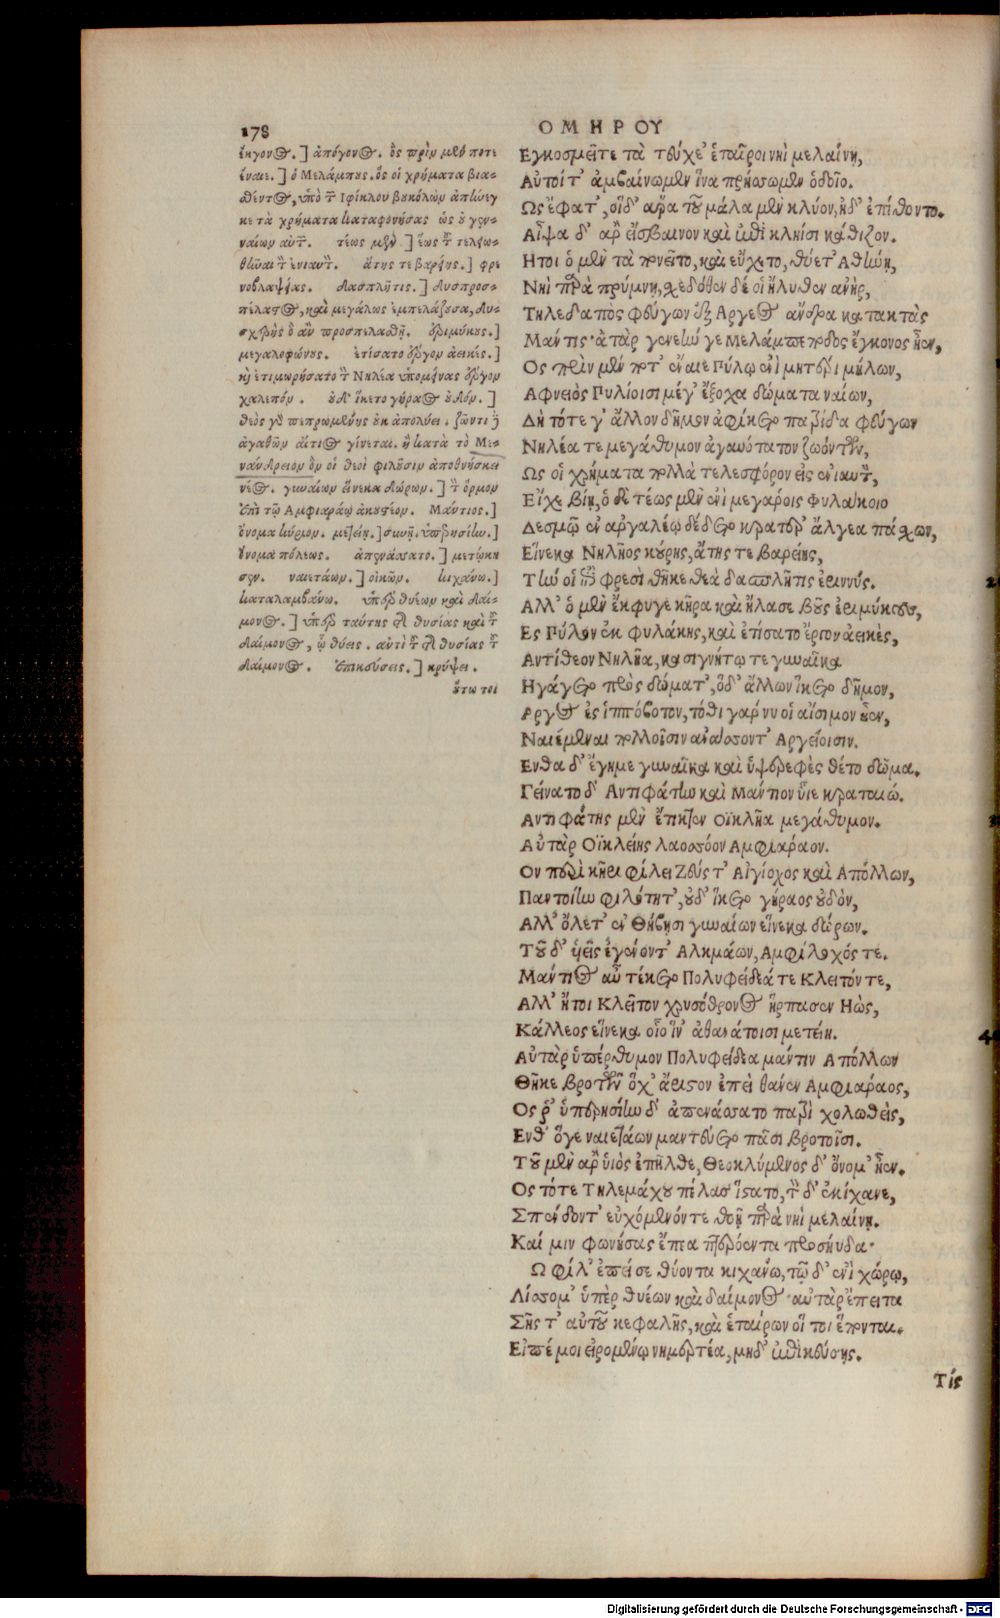 178
ΟΜΗΡΟΥ
ἔκγονος.] ἀπόγονος. ὃς πρὶν μέν ποτε
ἔναιε.] ὁ Μελάμπους. ὃς οἱ χρήματα βια-
θέντος, ὑπὸ τοῦ Ιφίκλου βουκόλων ἀπήνεγ
κε τὰ χρήματα καταφρονήσας ὡς οὐ γεν-
ναίων αὐτοῦ. τέως μὲν.] ἕως τοῦ τελεω-
θῆναι τὸν ἐνιαυτόν. ἄτης τε βαρείης.] φρε
νοβλαψίας. δασπλῆτις.] δυσπροσ-
πέλαστος, καὶ μεγάλως ἐμπελάζουσα, δυ-
σχερὴς ὃ ἂν προσπελασθῇ. ἐριμύκους.]
μεγαλοφώνους. ἐτίσατο ἔργον ἀεικές.]
καὶ ἐτιμωρήσατο τὸν Νηλέα ὑπομείνας ἔργον
χαλεπόν. οὐδ' ἵκετο γήραος οὐδόν.]
θεὸς γὰρ πεπρωμένης οὐκ ἀπολύει. ζῶντι δὲ
ἀγαθῶν αἴτιος γίνεται. ἢ κατὰ τὸ Με-
νάνδρειον ὃν οἱ θεοὶ φιλοῦσιν ἀποθνήσκει
νέος. γυναίων εἵνεκα δώρων.] τὸν ὅρμον
ἐπὶ τῷ Αμφιαράῳ ἀκουστέον. Μάντιος.]
ὄνομα κύριον. μετείη.] συνῇ. ὑπερησίην.]
ὄνομα πόλεως. ἀπενάσατο.] μετῴκη
σεν. ναιετάων.] οἰκῶν. κιχάνω.]
καταλαμβάνω. ὑπὲρ θυέων καὶ δαί-
μονος.] ὑπὲρ ταύτης τῆς θυσίας καὶ τοῦ
δαίμονος, ᾧ θύεις. αὐτὶ τοῦ τῆς θυσίας τοῦ
δαίμονος. ἐπικεύσεις.] κρύψει.
οὕτω τοι
Εγκοσμεῖτε τὰ τεύχε' ἑταῖροι νηὶ μελαίνῃ,
Αὐτοί τ' ἀμβαίνωμεν ἵνα πρήσσωμεν ὁδοῖο.
Ως ἔφατ', οἱ δ' ἄρα τοῦ μάλα μὲν κλύον, ἠδ' ἐπίθοντο.
Αἶψα δ' ἄρ εἴσβαινον καὶ ἐπὶ κληῖσι κάθιζον.
Ητοι ὁ μὲν τὰ πονεῖτο, καὶ εὔχετο, θύετ' Αθήνῃ,
Νηῒ παρὰ πρύμνῃ, σχεδόθεν δέ οἱ ἤλυθεν ἀνὴρ,
Τηλεδαπὸς φεύγων ἐξ Αργεος ἄνδρα κατακτὰς
Μάντις· ἀτὰρ γενεήν γε Μελάμποδος ἔκγονος ἦεν,
Ος πρὶν μέν ποτ' ἔναιε Πύλῳ ἐνὶ μητέρι μήλων,
Αφνειὸς Πυλίοισι μέγ' ἔξοχα δώματα ναίων,
Δὴ τότε γ' ἄλλον δῆμον ἀφίκετο πατρίδα φεύγων
Νηλέα τε μεγάθυμον ἀγαυότατον ζωόντων,
Ως οἱ χρήματα πολλὰ τελεσφόρον εἰς ἐνιαυτὸν,
Εἶχε βίῃ, ὁ δὲ τέως μὲν ἐνὶ μεγάροις Φυλάκοιο
Δεσμῷ ἐν ἀργαλέῳ δέδετο κρατέρ' ἄλγεα πάσχων,
Εἵνεκα Νηλῆος κούρης, ἄτης τε βαρείης,
Τήν οἱ ἐπὶ φρεσὶ θῆκε θεὰ δασπλῆτις ἐριννύς.
Αλλ' ὁ μὲν ἔκφυγε κῆρα καὶ ἤλασε βοῦς ἐριμύκους,
Ες Πύλον ἐκ Φυλάκης, καὶ ἐτίσατο ἔργον ἀεικὲς,
Αντίθεον Νηλῆα, κασιγνήτῳ τε γυναῖκα
Ηγάγετο πρὸς δώματ', ὁ δ' ἄλλων ἵκετο δῆμον,
Αργος ἐς ἱππόβοτον, τόθι γάρ νυ οἱ αἴσιμον ἦεν,
Ναιέμεναι πολλοῖσιν ἀνάσσοντ' Αργείοισιν.
Ενθα δ' ἔγημε γυναῖκα καὶ ὑψερεφὲς θέτο δῶμα.
Γείνατο δ' Αντιφάτην καὶ Μάντιον υἷε κραταιώ.
Αντιφάτης μὲν ἔτικτεν Οϊκλῆα μεγάθυμον.
Αὐτὰρ Οϊκλείης λαοσσόον Αμφιάραον.
Ον περὶ κῆρι φίλει Ζεύς τ' Αἰγίοχος καὶ Απόλλων,
Παντοίην φιλότητ', οὐδ' ἵκετο γήραος οὐδὸν,
Αλλ' ὄλετ' ἐν Θήβῃσι γυναίων εἵνεκα δώρων.
Τοῦ δ' υἱεῖς ἐγένοντ' Αλκμάων, Αμφίλοχός τε.
Μάντιος αὖ τέκετο Πολυφείδεά τε Κλεῖτόν τε,
Αλλ' ἤτοι Κλεῖτον χρυσόθρονος ἥρπασεν Ηὼς,
Κάλλεος εἵνεκα οἷο ἵν' ἀθανάτοισι μετείη.
Αὐτὰρ ὑπέρθυμον Πολυφείδεα μάντιν Απόλλων
Θῆκε βροτῶν ὄχ' ἄριστον ἐπεὶ θάνεν Αμφιάραος,
Ος ῥ' ὑπερησίην δ' ἀπενάσσατο πατρὶ χολωθεὶς,
Ενθ' ὅγε ναιετάων μαντεύετο πᾶσι βροτοῖσι.
Τοῦ μὲν ἄρ υἱὸς ἐπῆλθε, Θεοκλύμενος δ' ὄνομ' ἦεν.
Ος τότε Τηλεμάχου πέλας ἵστατο, τὸν δ' ἐκίχανε,
Σπένδοντ' εὐχόμενόν τε θοῇ παρὰ νηῒ μελαίνῃ.
Καί μιν φωνήσας ἔπεα πτερόεντα προσηύδα·
Ω φίλ' ἐπεί σε θύοντα κιχάνω, τῷδ' ἐνὶ χώρῳ,
Λίσσομ' ὑπὲρ θυέων καὶ δαίμονος· αὐτὰρ ἔπειτα
Σῆς τ' αὐτοῦ κεφαλῆς, καὶ ἑταίρων οἵ τοι ἕπονται.
Εἰπέ μοι εἰρομένῳ νημερτέα, μηδ' ἐπικεύσῃς.
Τίς
Digitalisierung gefördert durch die Deutsche Forschungsgemeinschaft - DFG